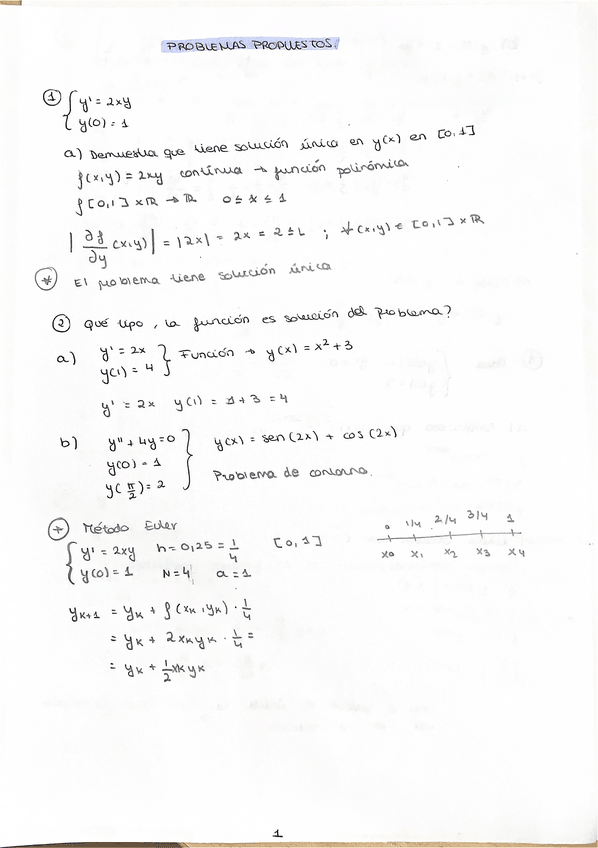 PROBLEMAS PROPUESTOS.
① { y' = 2xy
y(0) = 1
a) Demuestra que tiene solución única en y(x) en [0,1]
f(x,y) = 2xy continua → función polinómica
f [0,1] x ℝ → ℝ 0 ≤ x ≤ 1
| ∂f/∂y (x,y) | = |2x| = 2x = 2 ≤ L ; ∀(x,y) ∈ [0,1] x ℝ
* El problema tiene solución única
② Qué tipo, la función es solución del problema?
a) y' = 2x
y(1) = 4 } Función → y(x) = x² + 3
y' = 2x y(1) = 1 + 3 = 4
b) y'' + 4y = 0 } y(x) = sen(2x) + cos(2x)
y(0) = 1
y(π/2) = 2 Problema de contorno.
* Método Euler
{ y' = 2xy h = 0,25 = 1/4 [0,1]
y(0) = 1 N = 4 a = 1
0 1/4 2/4 3/4 1
x0 x1 x2 x3 x4
yK+1 = yK + f(xK, yK) · 1/4
= yK + 2xKyK · 1/4 =
= yK + 1/2 xK yK
1